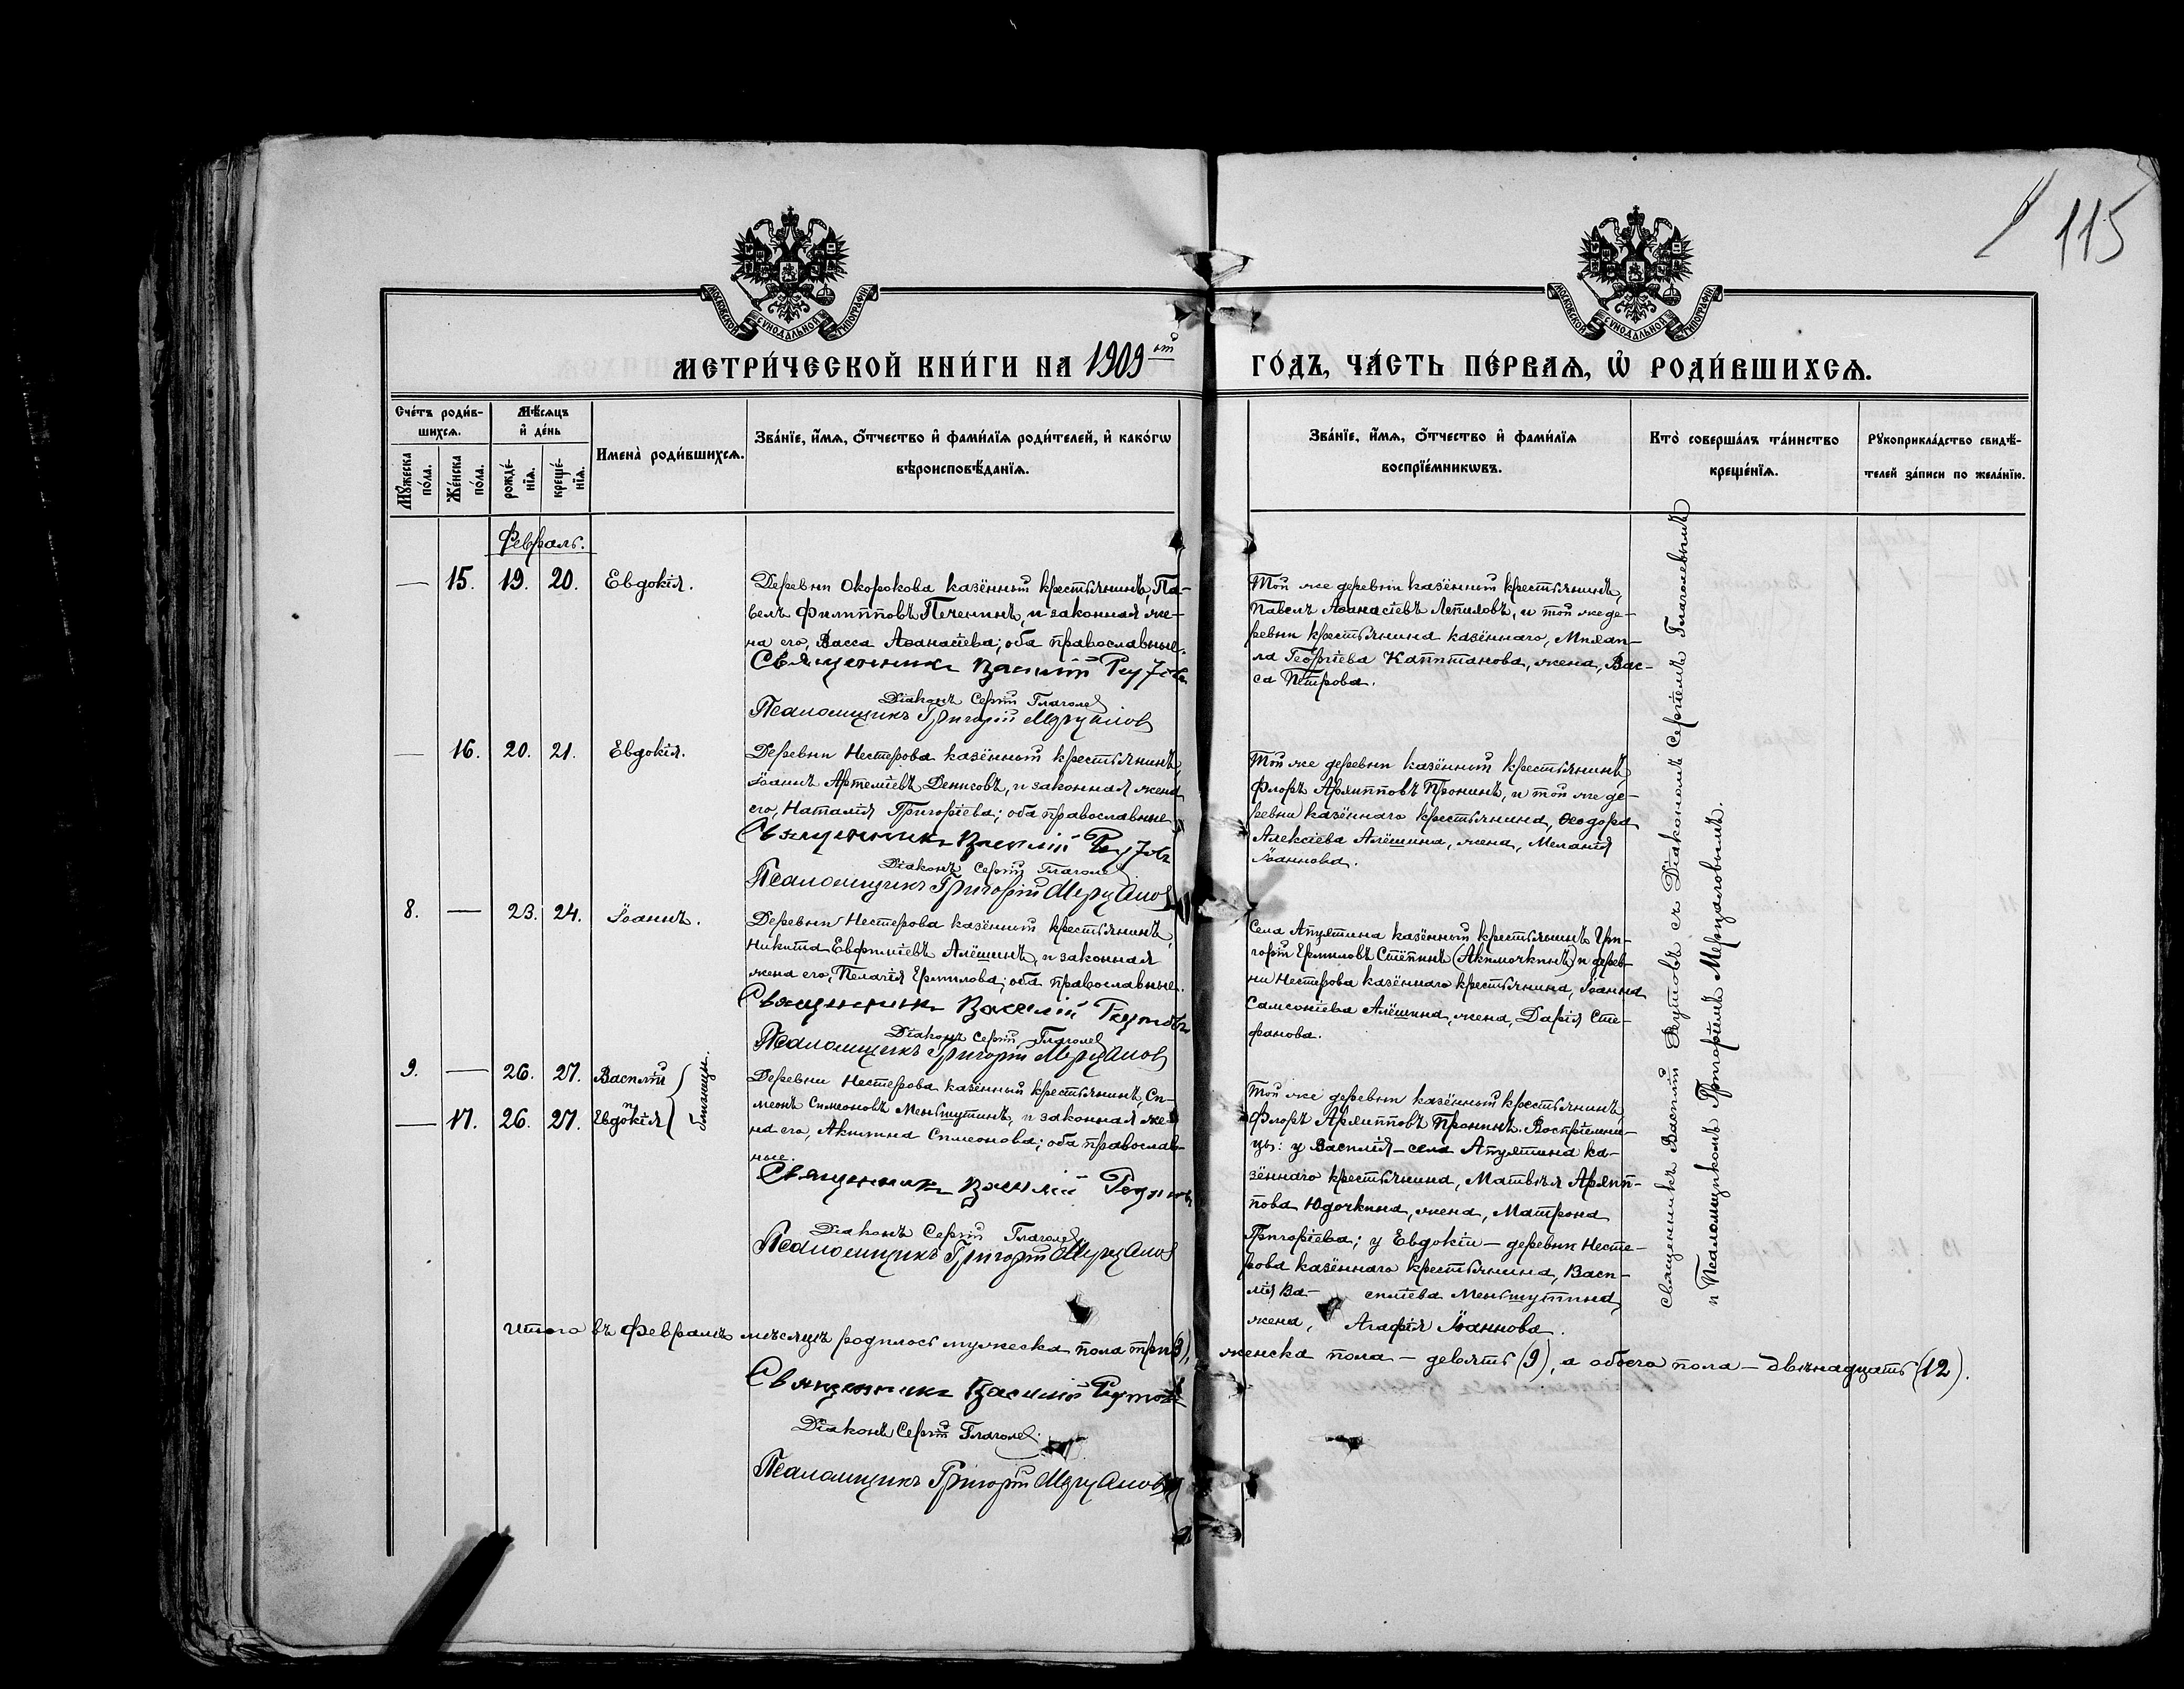 115
МОСКОВСКОЙ СѴНОДАЛЬНОЙ ТИПОГРАФІИ
МОСКОВСКОЙ СѴНОДАЛЬНОЙ ТИПОГРАФІИ
МЕТРИ́ЧЕСКОЙ КНИ́ГИ НА 1909 ый
ГО́ДЪ, ЧА́СТЬ ПЕ́РВАѦ, Ѡ҆ РОДИ́ВШИХСѦ.
Сче́тъ роди́в-
шихсѧ.
Мꙋ́жеска по́ла.
Же́нска по́ла.
Мѣ́сяцъ
и҆ де́нь
рожде́-
нїѧ.
креще́-
нїѧ.
Имена̀ роди́вшихсѧ.
Зва́нїе, и҆́мѧ, ѻ҆́тчество и҆ фами́лїѧ роди́телей, и҆ како́гѡ
вѣроисповѣ́данїѧ.
Зва́нїе, и҆́мѧ, ѻ҆́тчество и҆ фами́лїѧ
воспрїе́мникѡвъ.
Кто̀ соверша́лъ та́инство
креще́нїѧ.
Рꙋкоприкла́дство свидѣ́-
телей за́писи по жела́нїю.
Февраль.
— 15. 19. 20. Евдокія.
Деревни Окорокова казённый крестьянинъ, Па-
велъ Филипповъ Печенинъ, и законная же-
на его, Васса Аѳанасіева; оба православные.
Священникъ Василій Реутовъ
Діаконъ Сергій Глаголев
Псаломщикъ Григорій Мерцалов
Той же деревни казённый крестьянинъ,
Павелъ Аѳанасіевъ Лепиловъ, и той же де-
ревни крестьянина казённаго, Михаи-
ла Георгіева Капитанова, жена, Вас-
са Петрова.
— 16. 20. 21. Евдокія.
Деревни Нестерова казённый крестьянинъ,
Іоаннъ Артеміевъ Денисовъ, и законная жена
его, Наталія Григоріева; оба православные
Священникъ Василій Реутовъ
Діаконъ Сергій Глаголев
Псаломщикъ Григорій Мерцалов
Той же деревни казённый крестьянинъ
Флоръ Архипповъ Пронинъ, и той же де-
ревни казённаго крестьянина, Ѳеодора
Алексіева Алёшина, жена, Меланія
Іоаннова.
8. — 23. 24. Іоаннъ.
Деревни Нестерова казённый крестьянинъ,
Никита Евфиміевъ Алёшинъ, и законная
жена его, Пелагія Ермилова; оба православные.
Священникъ Василій Реутовъ
Діаконъ Сергій Глаголев
Псаломщикъ Григорій Мерцалов
Села Апухтина казённый крестьянинъ Гри-
горій Ермиловъ Стёпинъ (Акимочкинъ) и дерев-
ни Нестерова казённаго крестьянина, Іоанна
Самсоніева Алёшина, жена, Дарія Сте-
фанова.
9. — 26. 27. Василій
— 17. 26. 27. Евдокія
и
Близнецы.
Деревни Нестерова казённый крестьянинъ, Си-
меонъ Симеоновъ Меньшутинъ, и законная же-
на его, Акилина Симеонова; оба православ-
ные.
Священникъ Василій Реутовъ
Діаконъ Сергій Глаголев
Псаломщикъ Григорій Мерцалов
Той же деревни казённый крестьянинъ
Флоръ Архипповъ Пронинъ. Воспріемни-
цы: у Василія — села Апухтина ка-
зённаго крестьянина, Матвѣя Архип-
пова Юдочкина, жена, Матрона
Григоріева; у Евдокіи — деревни Несте-
рова казённаго крестьянина, Васи-
лія Ва- силіева Меньшутина,
жена, Агафія Іоаннова.
Священникъ Василій Реутовъ съ Діакономъ Сергіемъ Глаголевымъ
и Псаломщикомъ Григоріемъ Мерцаловымъ.
Итого въ Февралѣ мѣсяцѣ родилось мужеска пола три (3), женска пола — девять (9), а обоего пола — двѣнадцать (12).
Священникъ Василій Реутовъ
Діаконъ Сергій Глаголев
Псаломщикъ Григорій Мерцалов